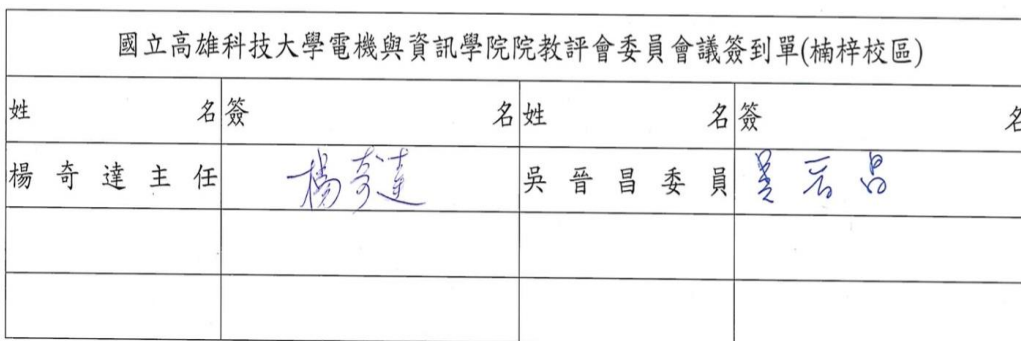 國立高雄科技大學電機與資訊學院院教評會委員會議簽到單(楠梓校區)
姓名 簽名 姓名 簽名
楊奇達主任 楊奇達 吳晉昌委員 吳晉昌